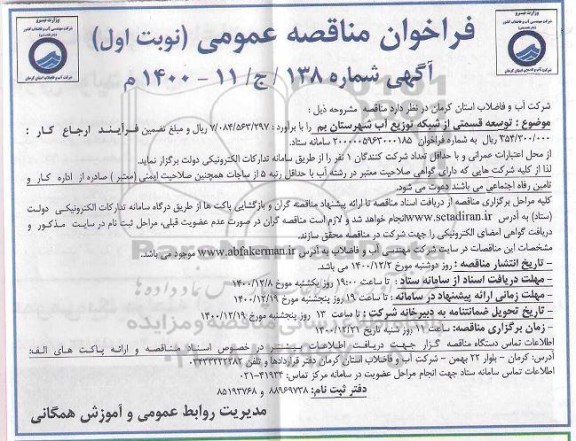 فراخوان مناقصه عمومی (نوبت اول)
آگهی شماره ۱۳۸ / ج / ۱۱ - ۱۴۰۰ م
شرکت آب و فاضلاب استان کرمان در نظر دارد مناقصه مشروحه ذیل :
موضوع : توسعه قسمتی از شبکه توزیع آب شهرستان بم را با برآورد : ۷/۰۸۴/۵۶۳/۲۹۷ ریال و مبلغ تضمین فرآیند ارجاع کار :
۳۵۴/۳۰۰/۰۰۰ ریال به شماره فراخوان ۲۰۰۰۰۰۵۹۶۳۰۰۰۱۸۵ سامانه ستاد.
از محل اعتبارات عمرانی و با حداقل تعداد شرکت کنندگان ۱ نفر را از طریق سامانه تدارکات الکترونیکی دولت برگزار نماید.
لذا از کلیه شرکت هایی که دارای گواهی صلاحیت معتبر در رشته آب با حداقل رتبه ۵ از ساجات همچنین صلاحیت ایمنی (معتبر) صادره از اداره کار و
تامین رفاه اجتماعی می باشند دعوت می شود.
کلیه مراحل برگزاری مناقصه از دریافت اسناد مناقصه تا ارائه پیشنهاد مناقصه گران و بازگشایی پاکت ها از طریق درگاه سامانه تدارکات الکترونیکی دولت
(ستاد) به آدرس www.setadiran.ir انجام خواهد شد و لازم است مناقصه گران در صورت عدم عضویت قبلی، مراحل ثبت نام در سایت مذکور و
دریافت گواهی امضای الکترونیکی را جهت شرکت در مناقصه محقق سازند.
مشخصات این مناقصات در سایت شرکت مهندسی آب و فاضلاب به آدرس www.abfakerman.ir موجود می باشد.
- تاریخ انتشار مناقصه : روز دوشنبه مورخ ۱۴۰۰/۱۲/۲ می باشد.
- مهلت دریافت اسناد از سامانه ستاد : تا ساعت ۱۹:۰۰ روز یکشنبه مورخ ۱۴۰۰/۱۲/۸
- مهلت زمانی ارائه پیشنهاد در سامانه : تا ساعت ۱۹ روز پنجشنبه مورخ ۱۴۰۰/۱۲/۱۹
- تاریخ تحویل ضمانتنامه به دبیرخانه شرکت : تا ساعت ۱۳ روز پنجشنبه مورخ ۱۴۰۰/۱۲/۱۹
- زمان برگزاری مناقصه: ساعت ۱۹ روز شنبه تاریخ ۱۴۰۰/۱۲/۲۱
اطلاعات تماس دستگاه مناقصه گزار جهت دریافت اطلاعات بیشتر در خصوص اسناد مناقصه و ارائه پاکت های الف:
آدرس: کرمان - بلوار ۲۲ بهمن - شرکت آب و فاضلاب استان کرمان دفتر قراردادها و تلفن
اطلاعات تماس سامانه ستاد جهت انجام مراحل عضویت در سامانه مرکز تماس: ۴۱۹۳۴-۰۲۱
دفتر ثبت نام: ۸۸۹۶۹۷۳۷ و ۸۵۱۹۳۷۶۸
مدیریت روابط عمومی و آموزش همگانی